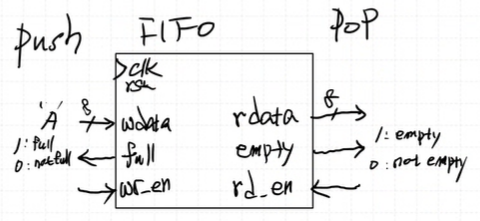 push FIFO POP
>clk
rst
'A' 8 wdata rdata 8
1: full full empty 1: empty
0: not full 0: not empty
wr_en rd_en